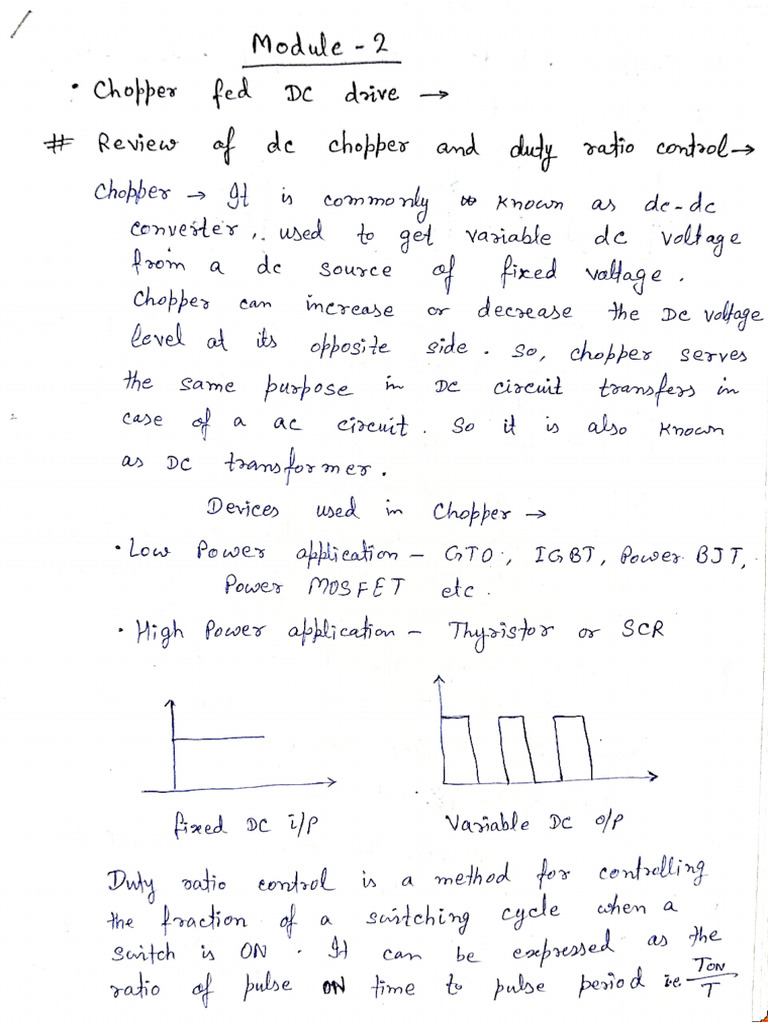 Module - 2
• Chopper fed DC drive →
# Review of dc chopper and duty ratio control →
Chopper → It is commonly known as dc-dc
converter, used to get variable dc voltage
from a dc source of fixed voltage.
Chopper can increase or decrease the DC voltage
level at its opposite side. So, chopper serves
the same purpose in DC circuit transfers in
case of a ac circuit. So it is also known
as DC transformer.
Devices used in Chopper →
• Low Power application - GTO, IGBT, Power BJT,
Power MOSFET etc.
• High Power application - Thyristor or SCR
fixed DC i/p
Variable DC o/p
Duty ratio control is a method for controlling
the fraction of a switching cycle when a
switch is ON. It can be expressed as the
ratio of pulse ON time to pulse period i.e. TON/T